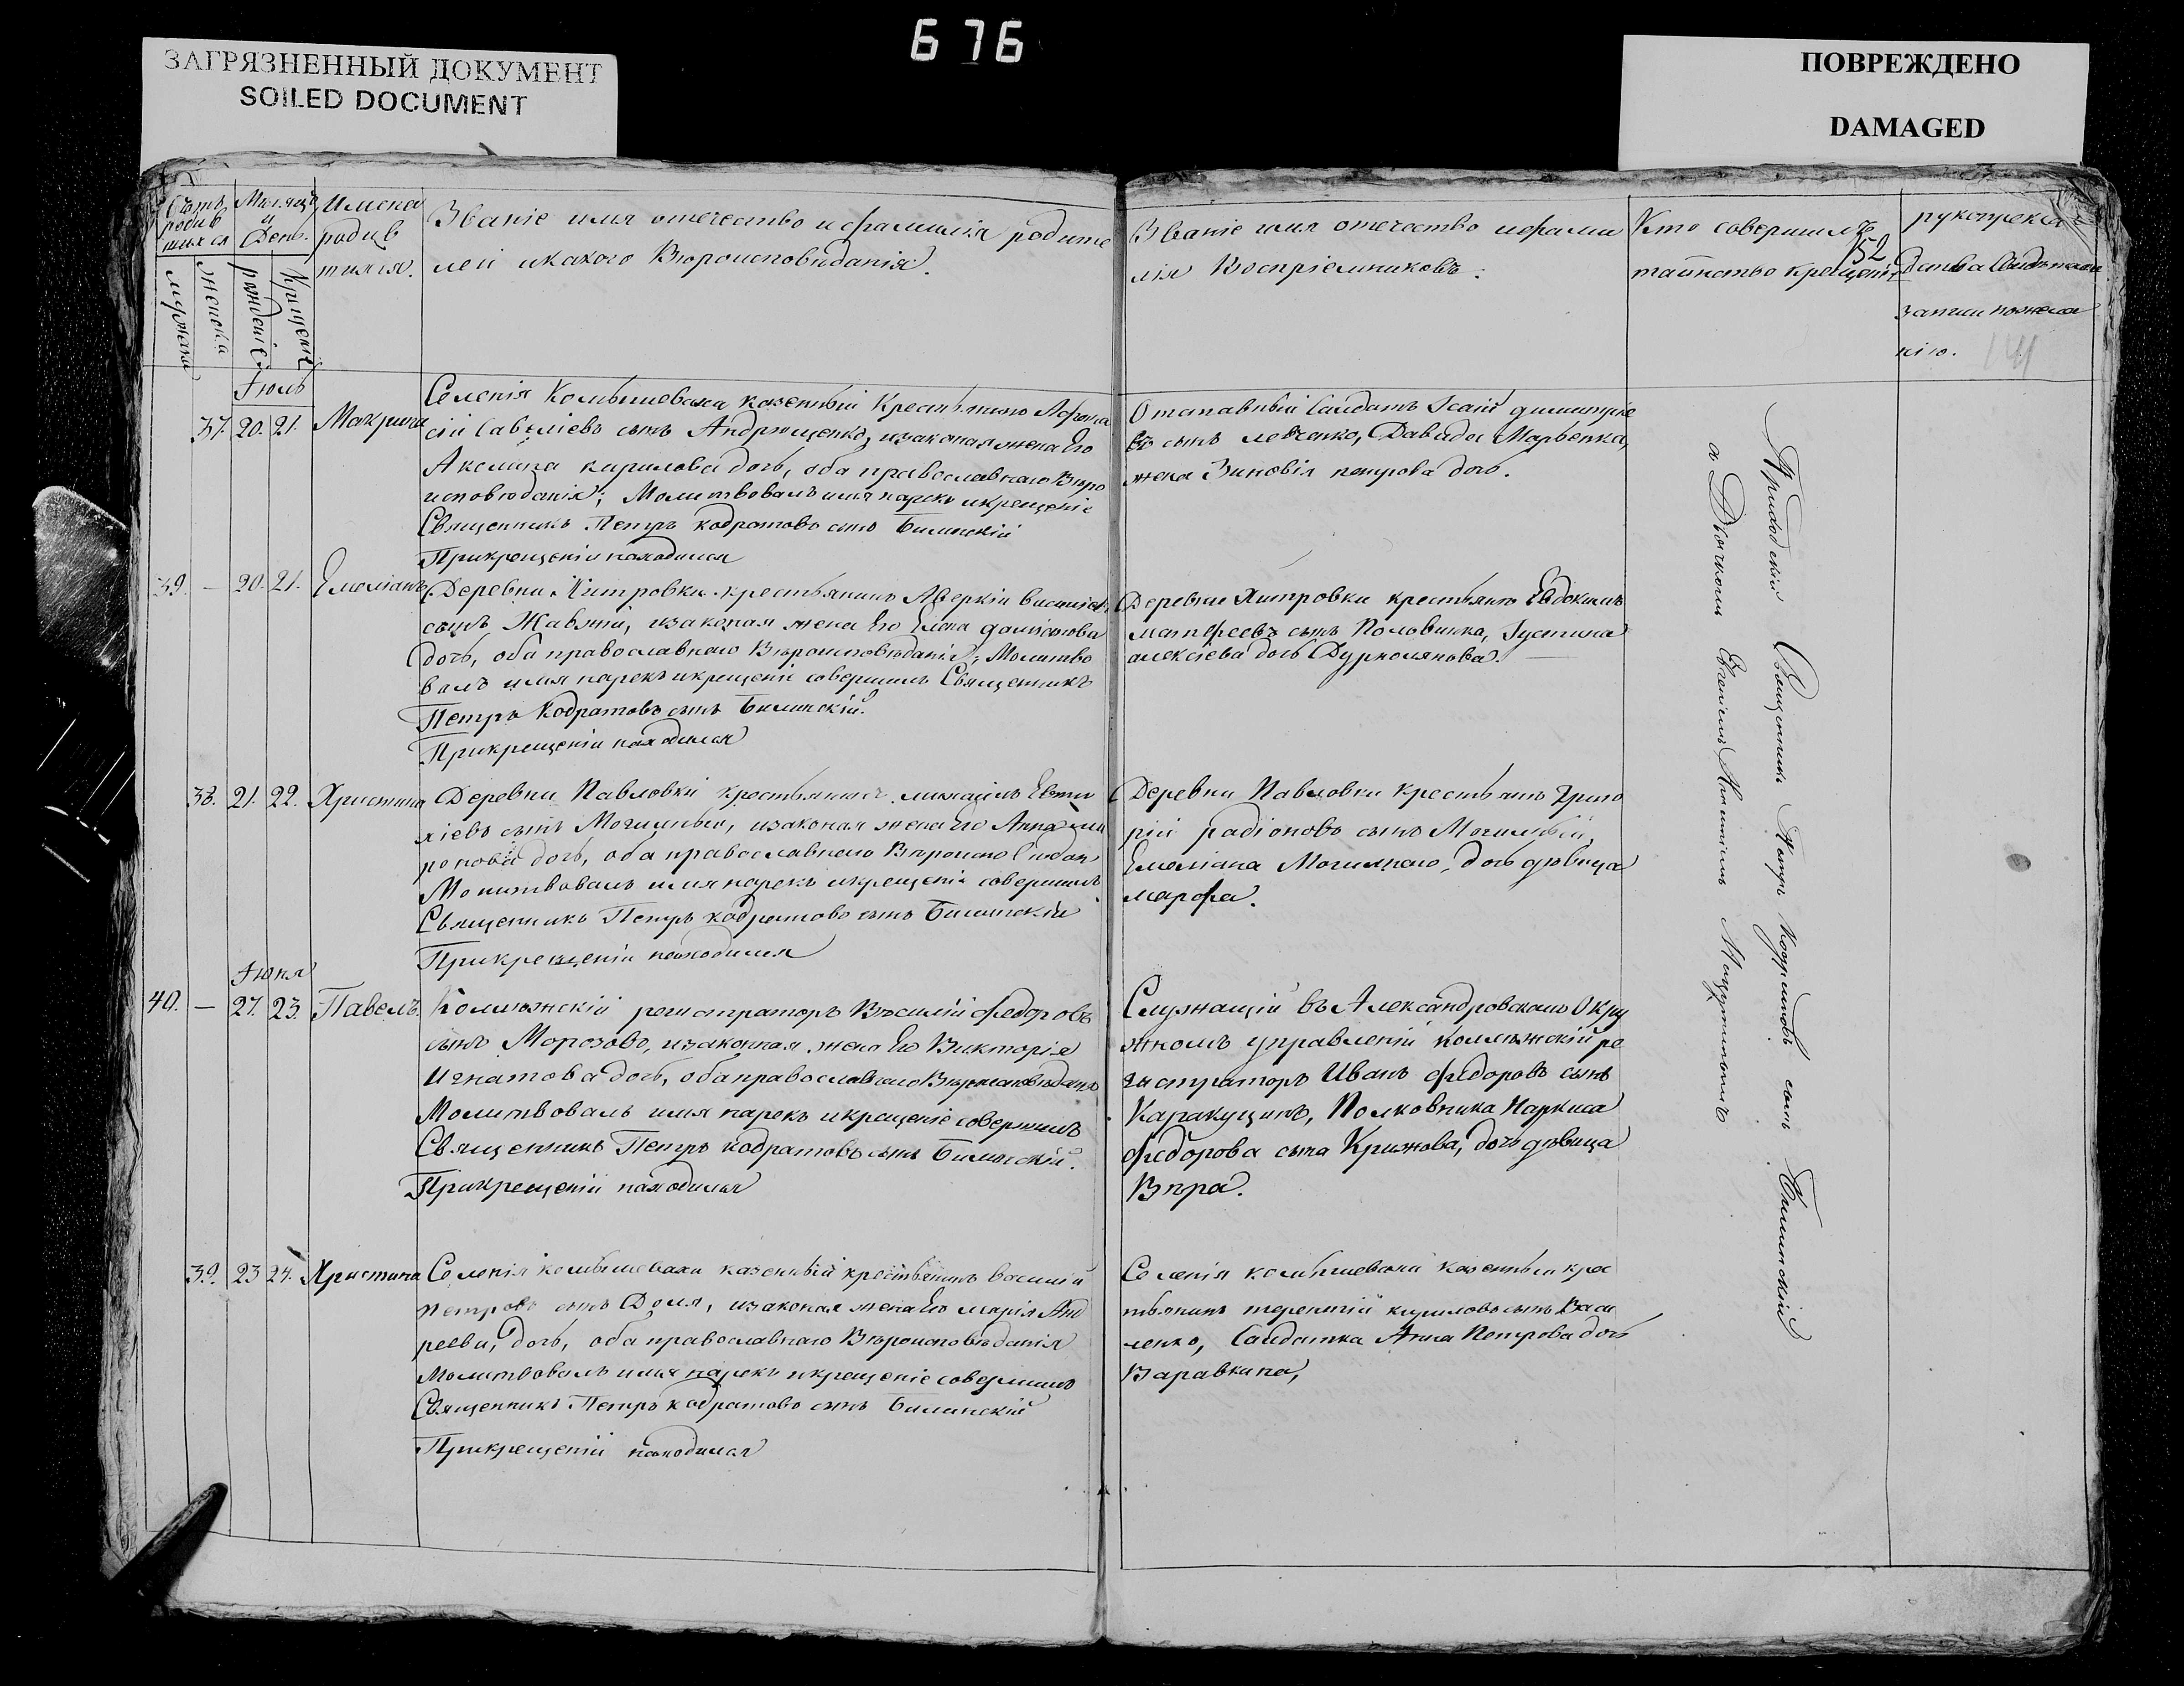 676
ЗАГРЯЗНЕННЫЙ ДОКУМЕНТ
SOILED DOCUMENT
ПОВРЕЖДЕНО
DAMAGED
Счетъ родив шихся
мужеска
женска
Месяцъ и День.
рожденіе
Крещеніе
Имена родив шихся.
Званіе имя отечество и фамилія родите
лей и какого Вѣроисповѣданія.
Званіе имя отечество и фами
лія Воспріемниковъ.
Кто совершилъ
таинство крещенія
152
рукоприкла
Записи по жела
нію.
141
Іюль
37. 20. 21. Макрина
Селенія Комышеваха казенный Крестьянинъ Афона
сій Савеліевъ сынъ Андрющенко, и законая жена Его
Акелина кирилова дочь, оба православнаго Вѣро
исповюданія; Молитвовалъ имя нарекъ и крещеніе
Священникъ Петръ кодратовъ сынъ Билинскій
При крещеніи находился
Отставный Салдатъ Ісаій димитріе
въ сынъ левченко, Давида Марьенка,
жена Зиновія петрова дочь.
39. — 20. 21. Емеліанъ
Деревни Хитровки крестьянинъ Аверкій
сынъ Жавжій, и законая жена Его Елена
дочь, оба православнаго Вѣроисповюданія; Молитво
валъ имя нарекъ и крещеніе совершилъ Священникъ
Петръ Кодратовъ сынъ Билинскій.
При крещеніи находился
Деревни Хитровки крестьянъ Евдокимъ
матфеевъ сынъ Половинка, Іустина
алексіева дочь Дурноляпова.
38. 21. 22. Христина
Деревни Павловки крестьянинъ михаилъ Евти
хіевъ сынъ Могильный, и законая жена Его Анна ми
ронова дочь, оба православнаго
Молитвовалъ имя нарекъ и крещеніе совершилъ
Священникъ Петръ кодратовъ сынъ Билинскій
При крещеніи находился
Деревни Павловки крестьянъ Григо
рій радіоновъ сынъ Могильный,
Емеліана Могилнаго, дочь дѣвица
марфа.
Іюня
40. — 27. 23. Павелъ.
Коллѣжскій регистраторъ Василій федоровъ
сынъ Морозовъ, и законная жена Его Викторія
Игнатова дочь, оба православнаго Вѣроисповѣданія
Молитвовалъ имя нарекъ и крещеніе совершилъ
Священникъ Петръ кодратовъ сынъ Билинскій.
При крещеніи находился
Служащій въ Александровскомъ Окру
жномъ управленіи Коллѣжскій ре
гистраторъ Иванъ федоровъ сынъ
Каракуцинъ, Полковника Наркиса
федорова сына Крижова, дочь дѣвица
Вѣра.
39. 23 24. Христина
Селенія комышевахи казенный крестьянинъ василій
петровъ сынъ Доля, и законая жена Его марія Анд
реева, дочь, оба православнаго Вѣроисповѣданія
Молитвовалъ имя нарекъ и крещеніе совершилъ
Священникъ Петръ кодратовъ сынъ Билинскій
При крещеніи находился
Селенія комышевахи казенный крес
тьянинъ терентій кириловъ сынъ Васи
ленко, Салдатка Анна Петрова дочь
Варавкина,
Приходскій Священникъ Петръ Кодратовъ сынъ Билинскій
съ Дьячкомъ